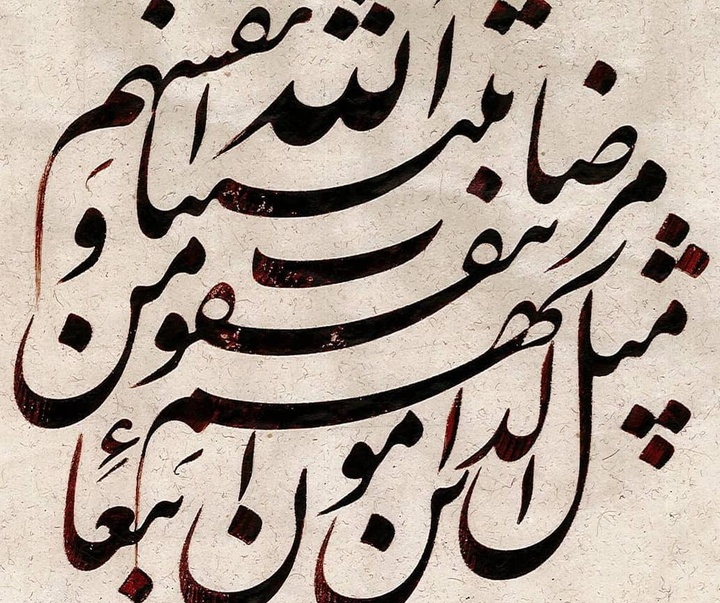 مثل الذین ینفقون اموالهم ابتغاءً
مرضات الله و تثبیتا من انفسهم